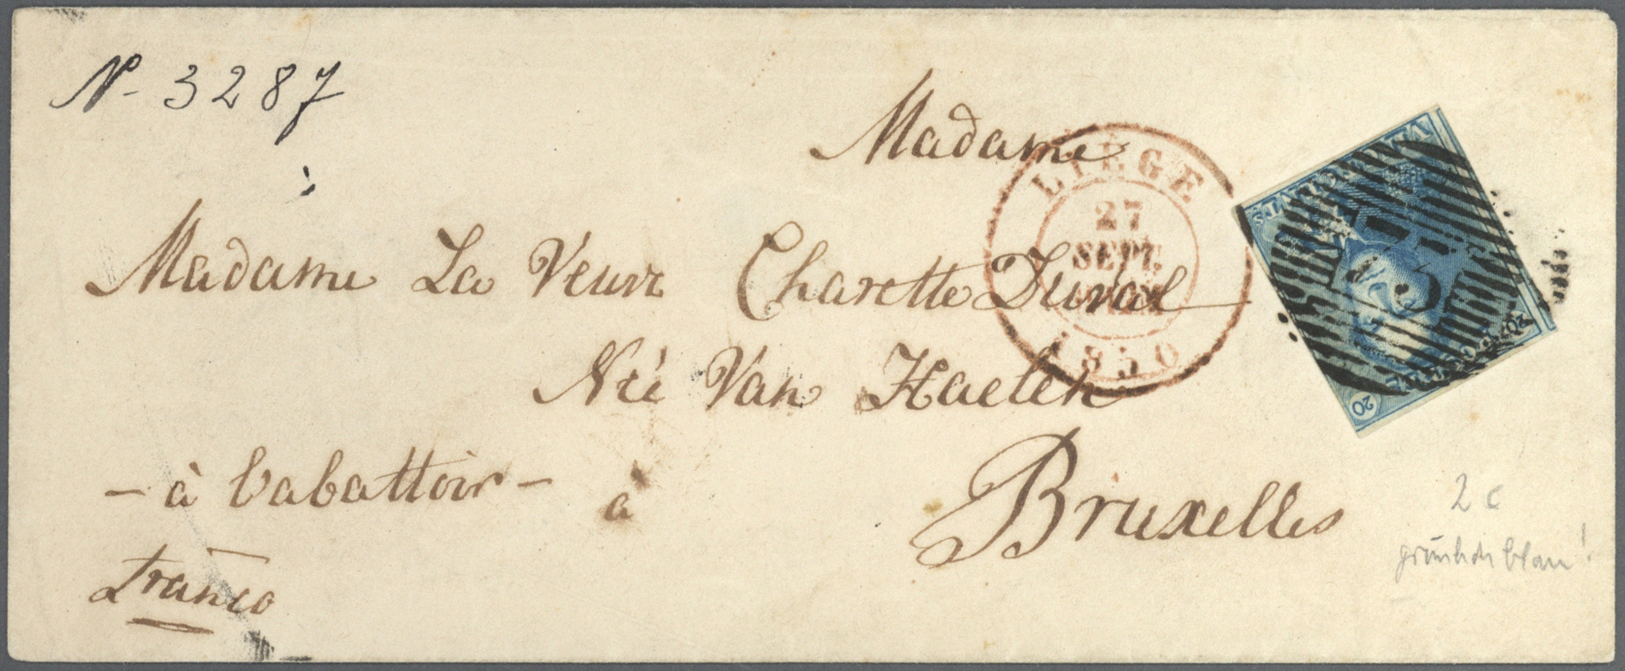 N. 3287
Madame
Madame La Veuve Charette Duval
Née Van Haelen
- à l'abattoir - à Bruxelles
franco
LIÉGE
27
SEPT.
1850
20
20
2 c
grünlichblau!